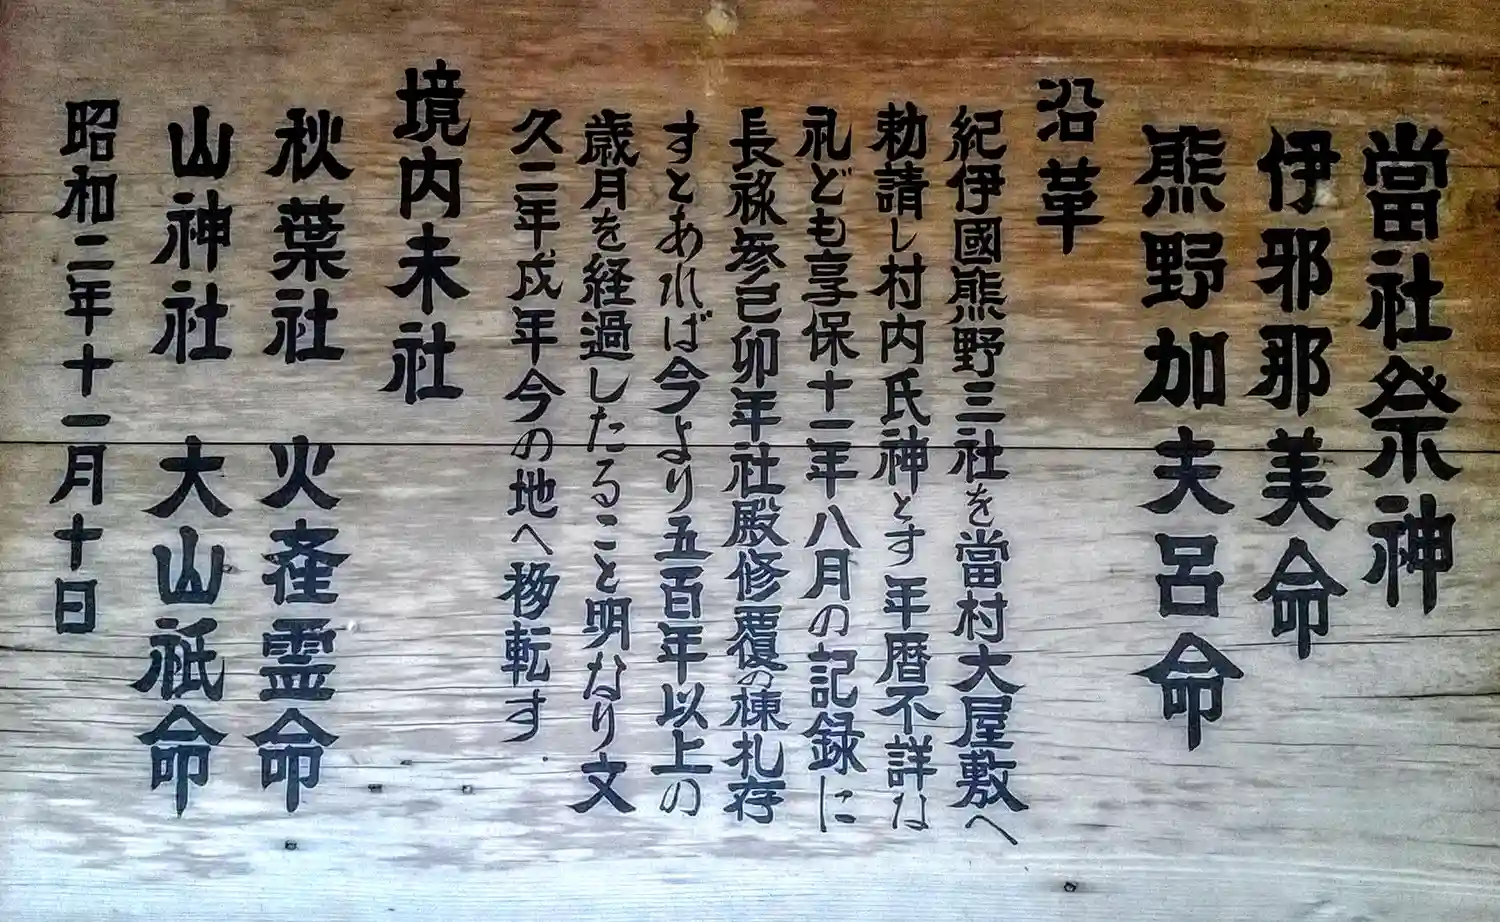 當社祭神
伊邪那美命
熊野加夫呂命
沿革
紀伊國熊野三社を當村大屋敷へ
勅請し村内氏神とす年暦不詳な
礼ども享保十一年八月の記録に
長禄参己卯年社殿修覆の棟札存
すとあれば今より五百年以上の
歳月を経過したること明なり文
久二年戌年今の地へ移転す
境内末社
秋葉社 火産霊命
山神社 大山祇命
昭和二年十一月十日